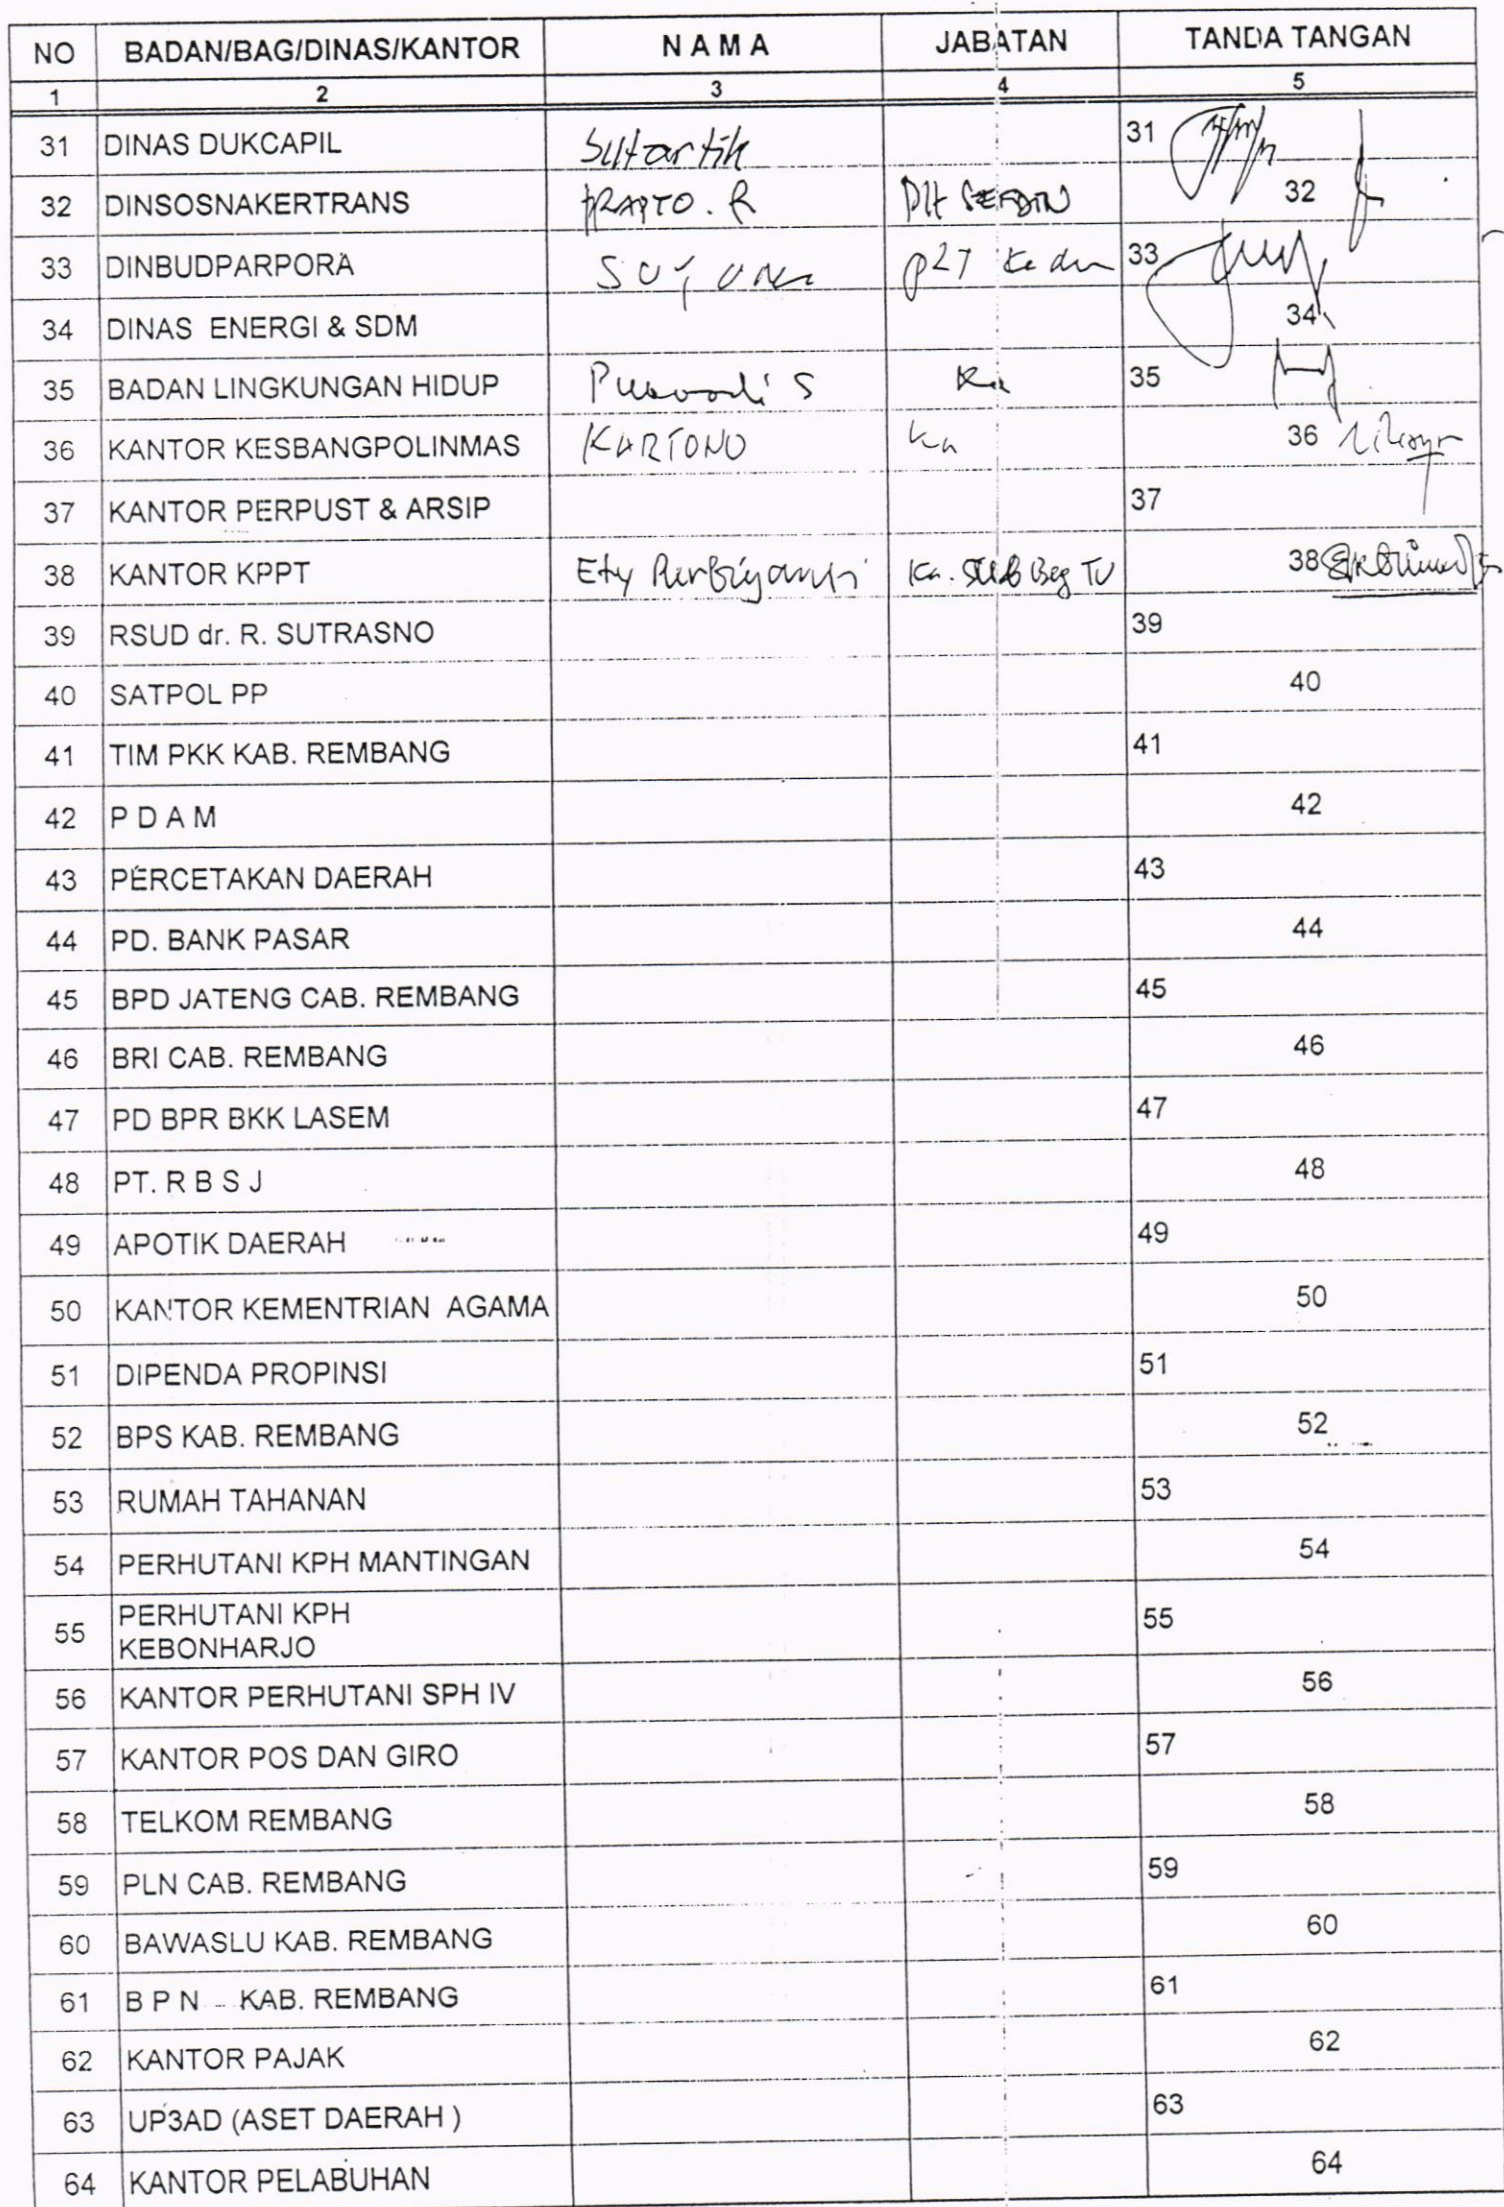 NO BADAN/BAG/DINAS/KANTOR N A M A JABATAN TANDA TANGAN
1 2 3 4 5
31 DINAS DUKCAPIL Sutartik 31
32 DINSOSNAKERTRANS PRAPTO. R Plt 32
33 DINBUDPARPORA SUYONO 33
34 DINAS ENERGI & SDM 34
35 BADAN LINGKUNGAN HIDUP S Ka 35
36 KANTOR KESBANGPOLINMAS KARTONO Ka 36
37 KANTOR PERPUST & ARSIP 37
38 KANTOR KPPT Ety Ka. SUB Bag TU 38
39 RSUD dr. R. SUTRASNO 39
40 SATPOL PP 40
41 TIM PKK KAB. REMBANG 41
42 P D A M 42
43 PERCETAKAN DAERAH 43
44 PD. BANK PASAR 44
45 BPD JATENG CAB. REMBANG 45
46 BRI CAB. REMBANG 46
47 PD BPR BKK LASEM 47
48 PT. R B S J 48
49 APOTIK DAERAH 49
50 KANTOR KEMENTRIAN AGAMA 50
51 DIPENDA PROPINSI 51
52 BPS KAB. REMBANG 52
53 RUMAH TAHANAN 53
54 PERHUTANI KPH MANTINGAN 54
55 PERHUTANI KPH 55
KEBONHARJO
56 KANTOR PERHUTANI SPH IV 56
57 KANTOR POS DAN GIRO 57
58 TELKOM REMBANG 58
59 PLN CAB. REMBANG 59
60 BAWASLU KAB. REMBANG 60
61 B P N KAB. REMBANG 61
62 KANTOR PAJAK 62
63 UP3AD (ASET DAERAH ) 63
64 KANTOR PELABUHAN 64